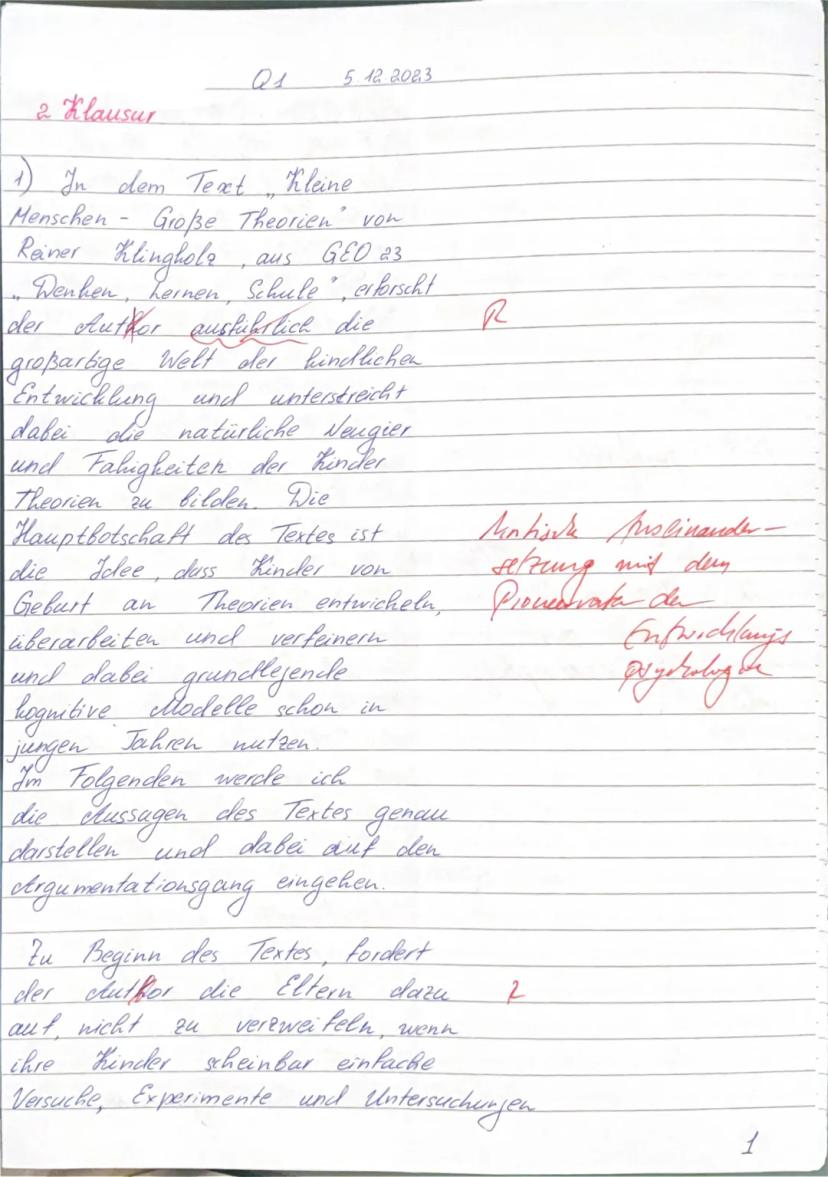 Q1 5.12.2023
2 Klausur
1) In dem Text „Kleine
Menschen - Große Theorien" von
Reiner Klingholz, aus GEO 23
„Denken, Lernen, Schule", erforscht
der Author ausführlich die
R
großartige Welt der kindlichen
Entwicklung und unterstreicht
dabei die natürliche Neugier
und Fähigkeiten der Kinder
Theorien zu bilden. Die
Hauptbotschaft des Textes ist
Kritische Auseinander-
die Idee, dass Kinder von
setzung mit dem
Geburt an Theorien entwickeln,
Pioniervater der
überarbeiten und verfeinern
Entwicklungs
und dabei grundlegende
psychologie
kognitive Modelle schon in
jungen Jahren nutzen.
Im Folgenden werde ich
die Aussagen des Textes genau
darstellen und dabei auf den
Argumentationsgang eingehen.
Zu Beginn des Textes, fordert
der Author die Eltern dazu
auf, nicht zu verzweifeln, wenn
ihre Kinder scheinbar einfache
Versuche, Experimente und Untersuchungen
1